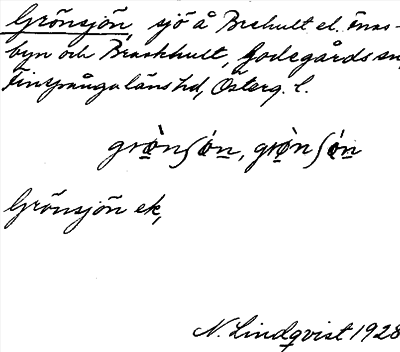 Grönsjön, sjö å Brehult el. Enas-
byn och Braskhult, Godegårds sn,
Finspånga läns hd, Österg. l.
grò̱nʃó̱n, grò̱nʃó̱n
Grönsjön ek,
N. Lindqvist 1928